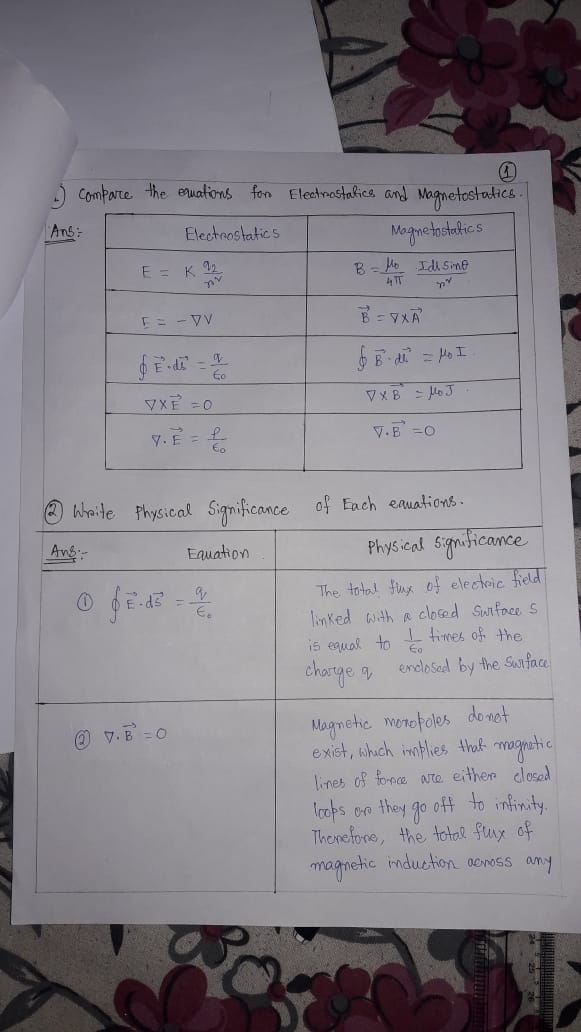 ①
Compare the equations for Electrostatics and Magnetostatics.
Ans:-
Electrostatics Magnetostatics
E = K q2/r² B = μ₀/4π Idl sinθ/r²
E = -∇V B⃗ = ∇×A⃗
∮ E⃗·ds⃗ = q/ε₀ ∮ B⃗·dl⃗ = μ₀ I
∇×E⃗ = 0 ∇×B⃗ = μ₀J
∇·E⃗ = ρ/ε₀ ∇·B⃗ = 0
② Write Physical Significance of Each equations.
Ans:- Equation Physical significance
① ∮ E⃗·ds⃗ = q/ε₀
The total flux of electric field
linked with a closed surface s
is equal to 1/ε₀ times of the
charge q enclosed by the surface
② ∇·B⃗ = 0
Magnetic monopoles donot
exist, which implies that magnetic
lines of force are either closed
loops or they go off to infinity.
Therefore, the total flux of
magnetic induction across any
24 25 26